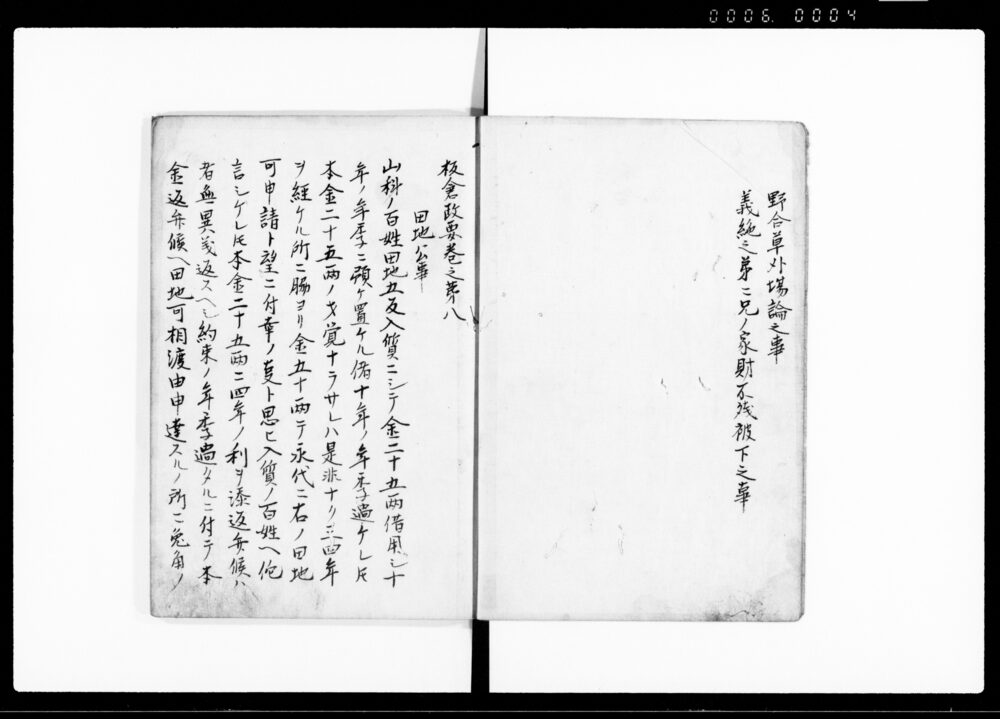 0006. 0004
野合草外場論之事
義絶之弟ニ兄ノ家財不残被下之事
板倉政要巻之第八
田地公事
山科ノ百姓田地五反入質ニシテ金二十五両借用シ十
年ノ年季ニ預ケ置ケル偖十年ノ年季過ケレ𪜈
本金二十五両ノ才覚ナラサレハ是非ナリ三四年
ヲ経ケル所ニ脇ヨリ金五十両テ永代ニ右ノ田地
可申請ト望ニ付幸ノ𠮷ト思ヒ入質ノ百姓ヘ佗
言シケレ𪜈本金二十五両ニ四年ノ利ヲ添返弁候ハ
者無異義返スヘシ約束ノ年季過タルニ付テ本
金返弁候ヘ田地可相渡由申達スルノ所ニ兎角ノ